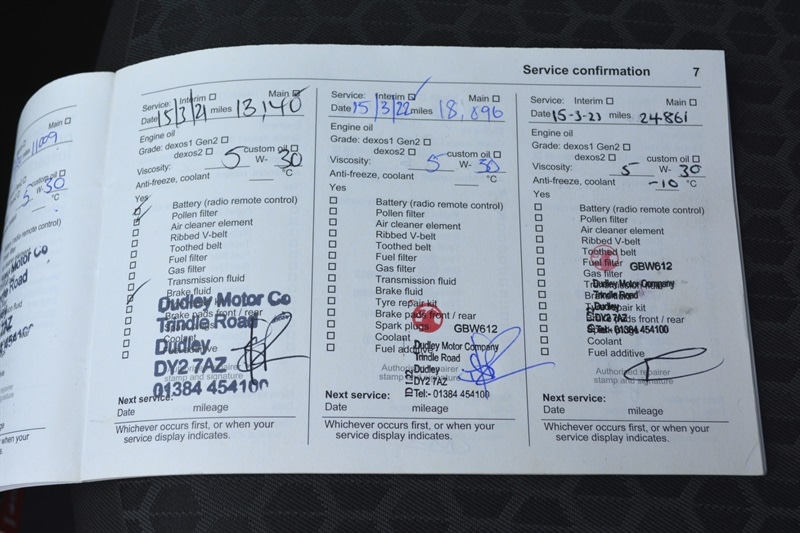 Service confirmation 7
11009
custom oil
5 W- 30
°C
(radio remote control)
Motor Co
Road
7AZ
when your
Service: Interim Main
Date 15/3/21 miles 13,140
Engine oil
Grade: dexos1 Gen2
dexos2 custom oil
Viscosity: 5 W- 30
Anti-freeze, coolant °C
Yes
Battery (radio remote control)
Pollen filter
Air cleaner element
Ribbed V-belt
Toothed belt
Fuel filter
Gas filter
Transmission fluid
Brake fluid
Brake pads front / rear
Coolant
Dudley Motor Co
Trindle Road
Dudley
DY2 7AZ
01384 454100
stamp and signature
Next service:
Date mileage
Whichever occurs first, or when your
service display indicates.
Service: Interim Main
Date 15/3/22 miles 18,896
Engine oil
Grade: dexos1 Gen2
dexos2 custom oil
Viscosity: 5 W- 30
Anti-freeze, coolant °C
Yes
Battery (radio remote control)
Pollen filter
Air cleaner element
Ribbed V-belt
Toothed belt
Fuel filter
Gas filter
Transmission fluid
Brake fluid
Tyre repair kit
Brake pads front / rear
Spark plugs
Coolant
Fuel additive
GBW612
Dudley Motor Company
Trindle Road
Dudley
DY2 7AZ
Tel:- 01384 454100
Next service:
Date mileage
Whichever occurs first, or when your
service display indicates.
Service: Interim Main
Date 15-3-23 miles 24861
Engine oil
Grade: dexos1 Gen2
dexos2 custom oil
Viscosity: 5 W- 30
Anti-freeze, coolant -10 °C
Yes
Battery (radio remote control)
Pollen filter
Air cleaner element
Ribbed V-belt
Toothed belt
Fuel filter
Gas filter
GBW612
Dudley Motor Company
Trindle Road
Dudley
DY2 7AZ
Tel:- 01384 454100
Coolant
Fuel additive
Authorised repairer
stamp and signature
Next service:
Date mileage
Whichever occurs first, or when your
service display indicates.